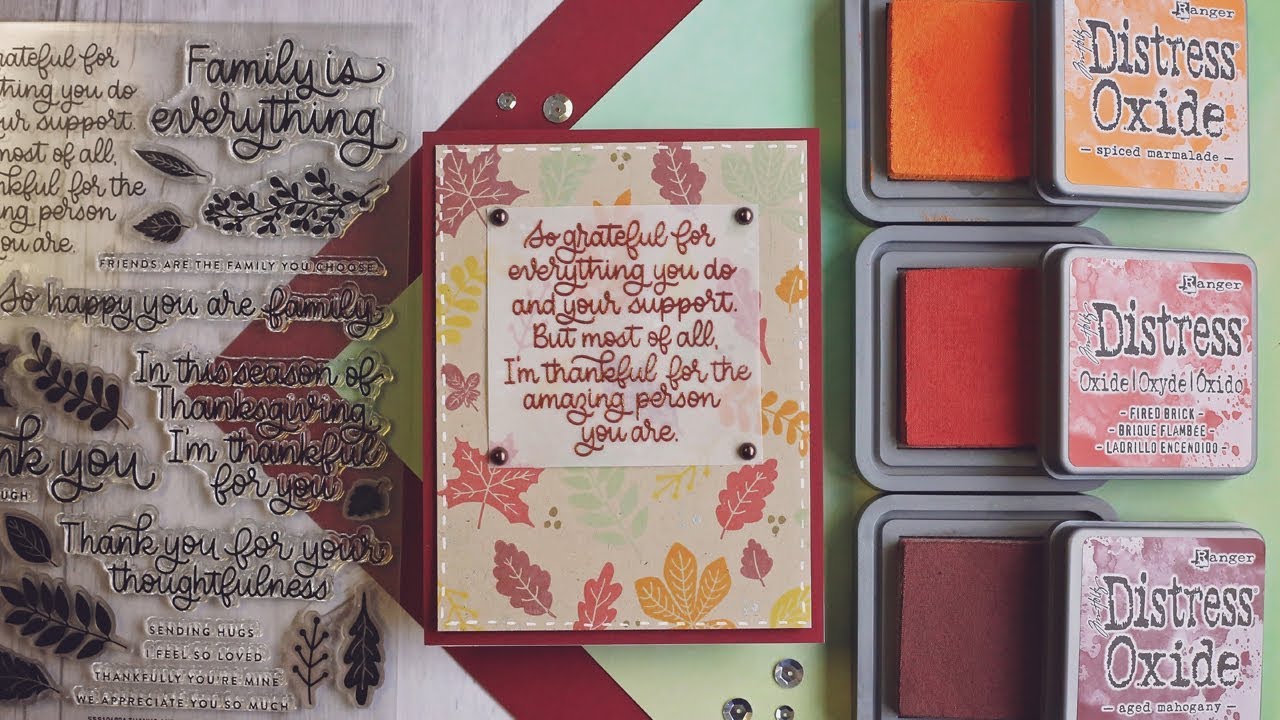 rateful for
thing you do
our support.
most of all,
nkful for the
ing person
you are.
Family is
everything
FRIENDS ARE THE FAMILY YOU CHOOSE
So happy you are family
In this season of
Thanksgiving
I'm thankful
for you
nk you
OUGH
Thank you for your
thoughtfulness
SENDING HUGS
I FEEL SO LOVED
THANKFULLY YOU'RE MINE
WE APPRECIATE YOU SO MUCH
So grateful for
everything you do
and your support.
But most of all,
I'm thankful for the
amazing person
you are.
Ranger
Tim Holtz
Distress
Oxide
- spiced marmalade -
Ranger
Tim Holtz
Distress
Oxide | Oxyde | Óxido
- FIRED BRICK -
- BRIQUE FLAMBÉE -
- LADRILLO ENCENDIDO -
Ranger
Tim Holtz
Distress
Oxide
- aged mahogany -